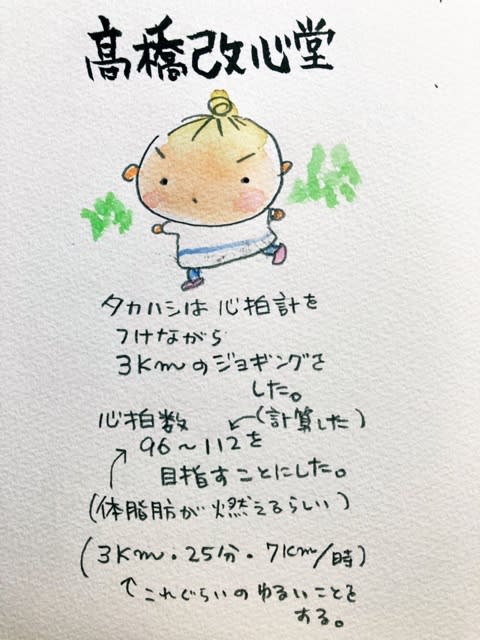 髙橋改心堂
タカハシは心拍計を
つけながら
3Kmのジョギングを
した。
心拍数 ←(計算した)
96～112を
目指すことにした。
(体脂肪が燃えるらしい)
(3Km・25分・7Km/時)
↑これぐらいのゆるいことを
する。